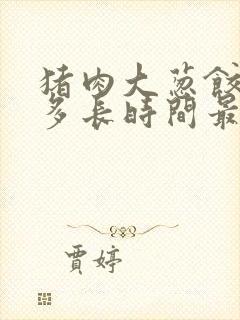 猪肉大葱餃
多長時間最
賈婷